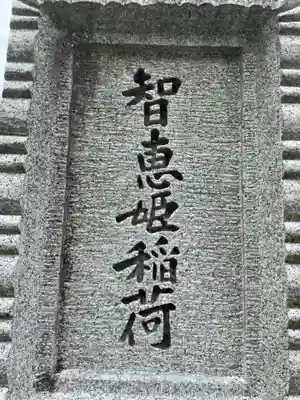 智恵姫稲荷